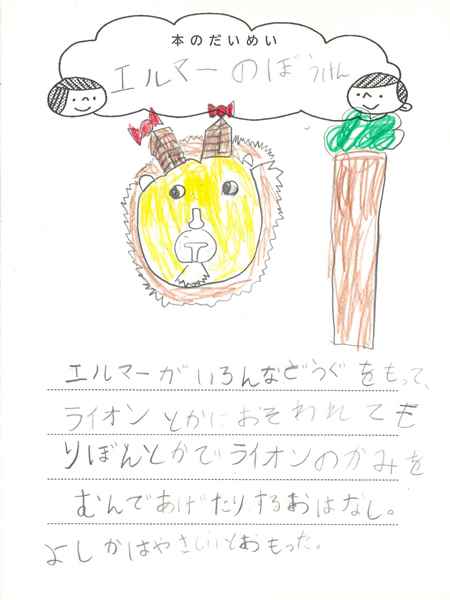 本のだいめい
エルマーのぼうけん
エルマーがいろんなどうぐをもって、
ライオンとかにおそわれても
りぼんとかでライオンのかみを
むんであげたりするおはなし。
よしかはやさしいとおもった。